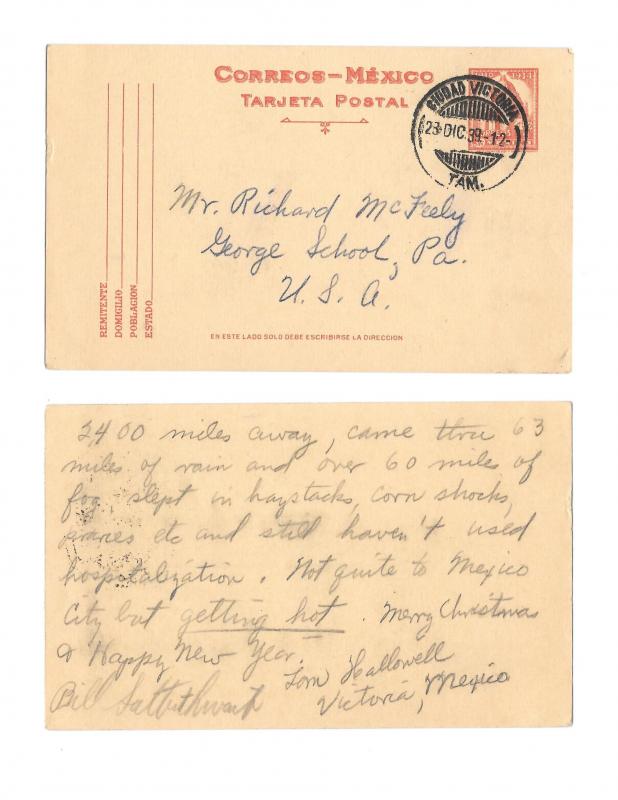 CORREOS-MÉXICO
TARJETA POSTAL
CIUDAD VICTORIA
23 DIC. 39.-12-
TAM.
REMITENTE
DOMICILIO
POBLACION
ESTADO
Mr. Richard McFeely
George School, Pa.
U. S. A.
EN ESTE LADO SOLO DEBE ESCRIBIRSE LA DIRECCION
2400 miles away, came thru 63
miles of rain and over 60 miles of
fog, slept in haystacks, corn shocks,
praries etc and still haven't used
hospitalization. Not quite to Mexico
City but getting hot. Merry Christmas
& Happy New Year.
Tom Hallowell
Bill Satterthwait
Victoria, Mexico